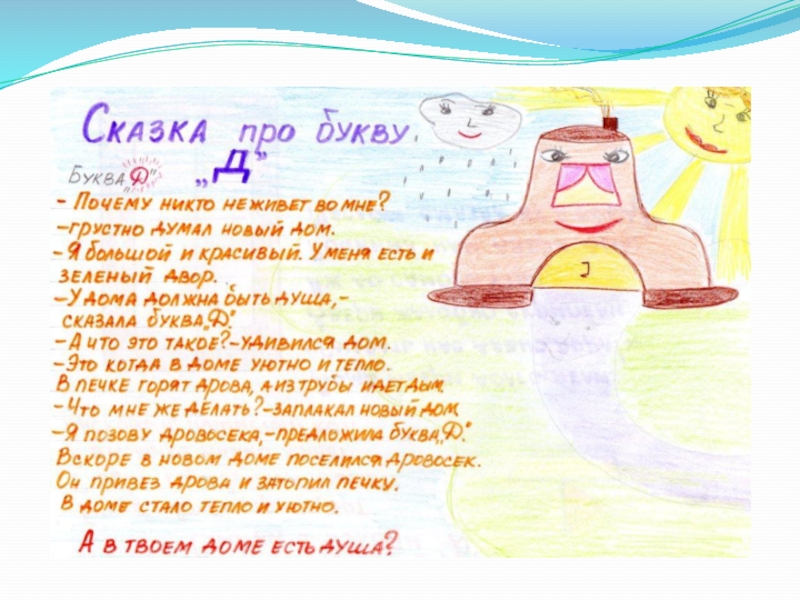 Сказка про букву
„Д”
Буква „Д”
- Почему никто не живет во мне?
-грустно думал новый дом.
- Я большой и красивый. У меня есть и
зеленый двор.
-У дома должна быть душа,-
сказала буква „Д”.
-А что это такое?-удивился дом.
-Это когда в доме уютно и тепло.
В печке горят дрова, а из трубы идет дым.
-Что мне же делать?-заплакал новый дом.
-Я позову дровосека,-предложила буква „Д”.
Вскоре в новом доме поселился дровосек.
Он привез дрова и затопил печку.
В доме стало тепло и уютно.
А в твоем доме есть душа?